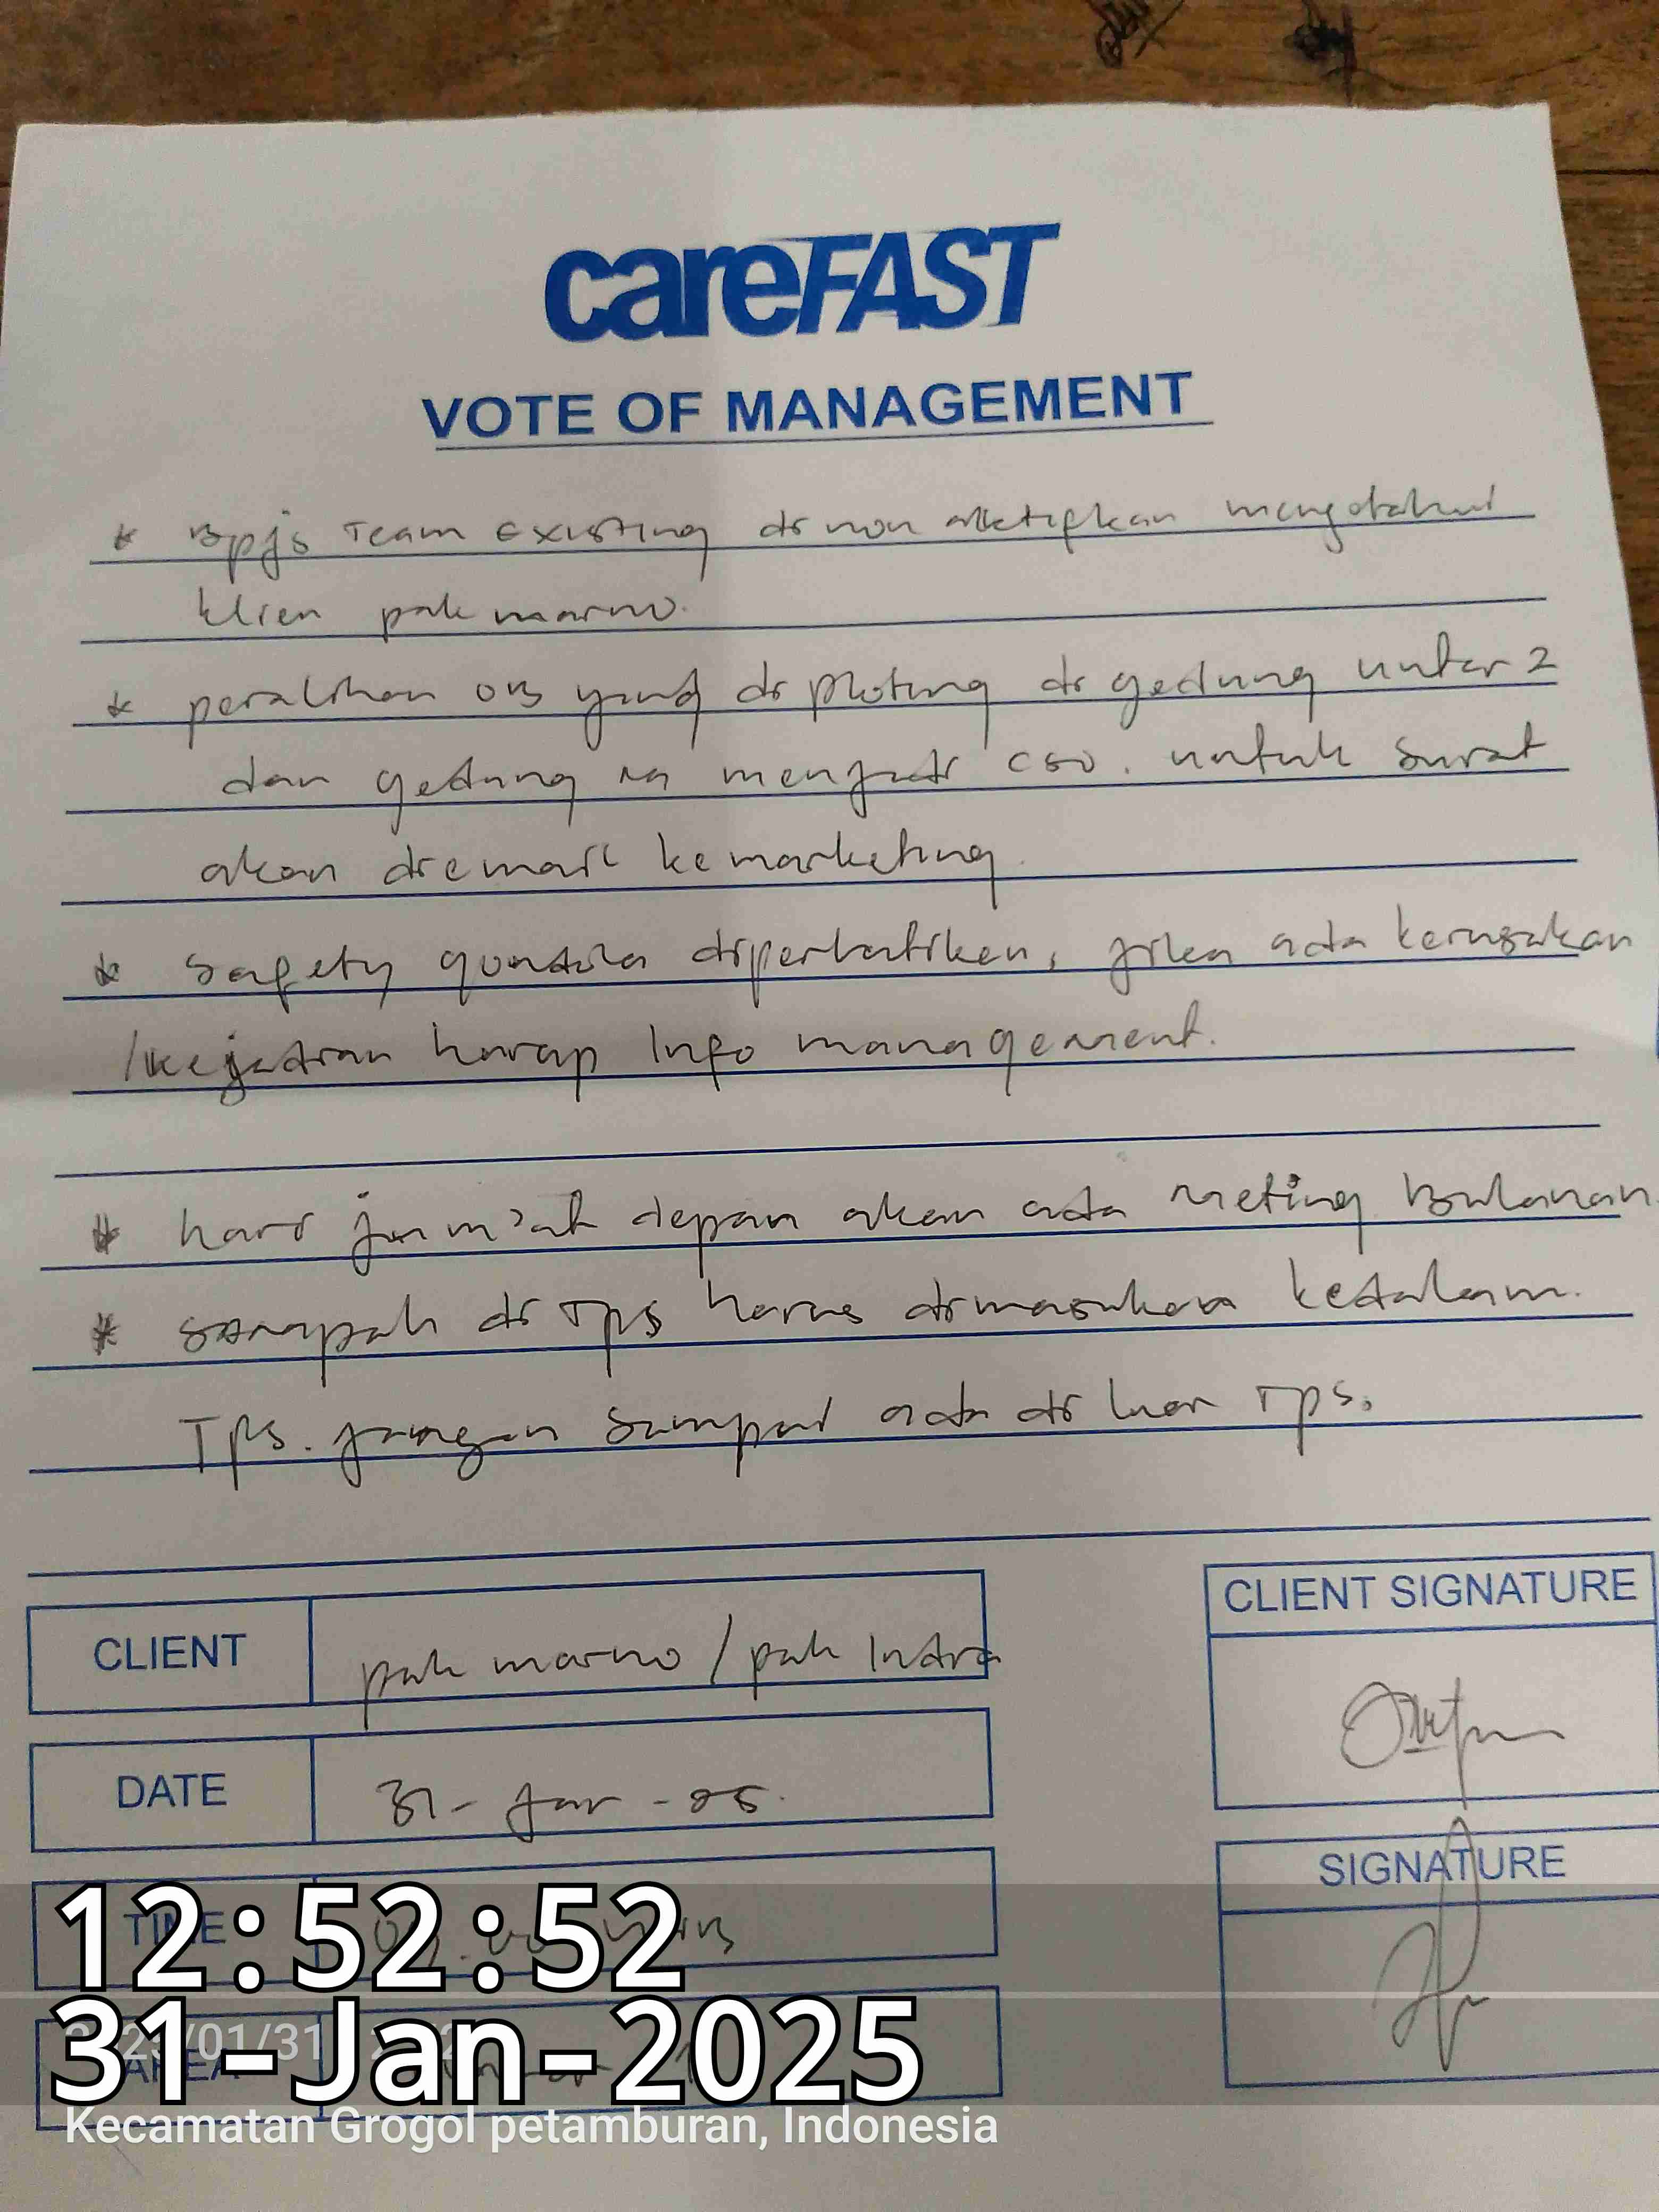 careFAST
VOTE OF MANAGEMENT
* Bpjs Team Existing di non aktifkan mengetahui
klien pak marno.
* peralihan OB yang di ploting di gedung untar 2
dan gedung menjadi CSO. untuk surat
akan di email ke marketing.
* Safety gondola diperhatikan, jika ada kerusakan
/kejadian harap Info management.
* hari jum'at depan akan ada meting Bulanan.
* sampah di Tps harus dimasukan kedalam.
Tps. jangan sampai ada di luar Tps.
CLIENT
pak marno / pak Indra
DATE
31-Jan-25.
CLIENT SIGNATURE
SIGNATURE
TIME
AREA
12:52:52
31-Jan-2025
Kecamatan Grogol petamburan, Indonesia